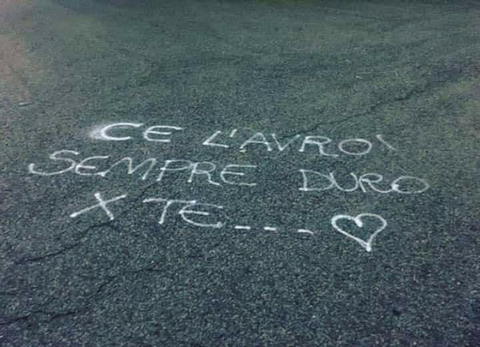 CE L'AVRO'
SEMPRE DURO
X TE...